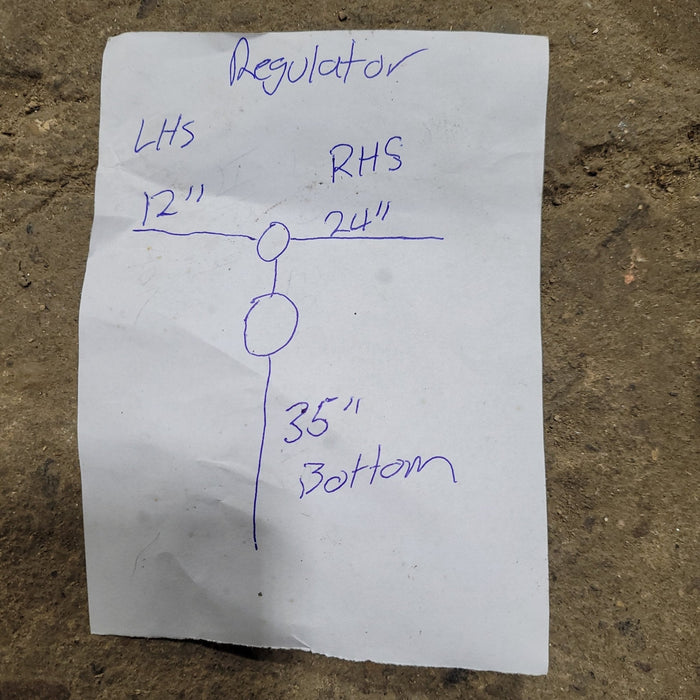 Regulator
LHS
RHS
12"
24"
35"
Bottom